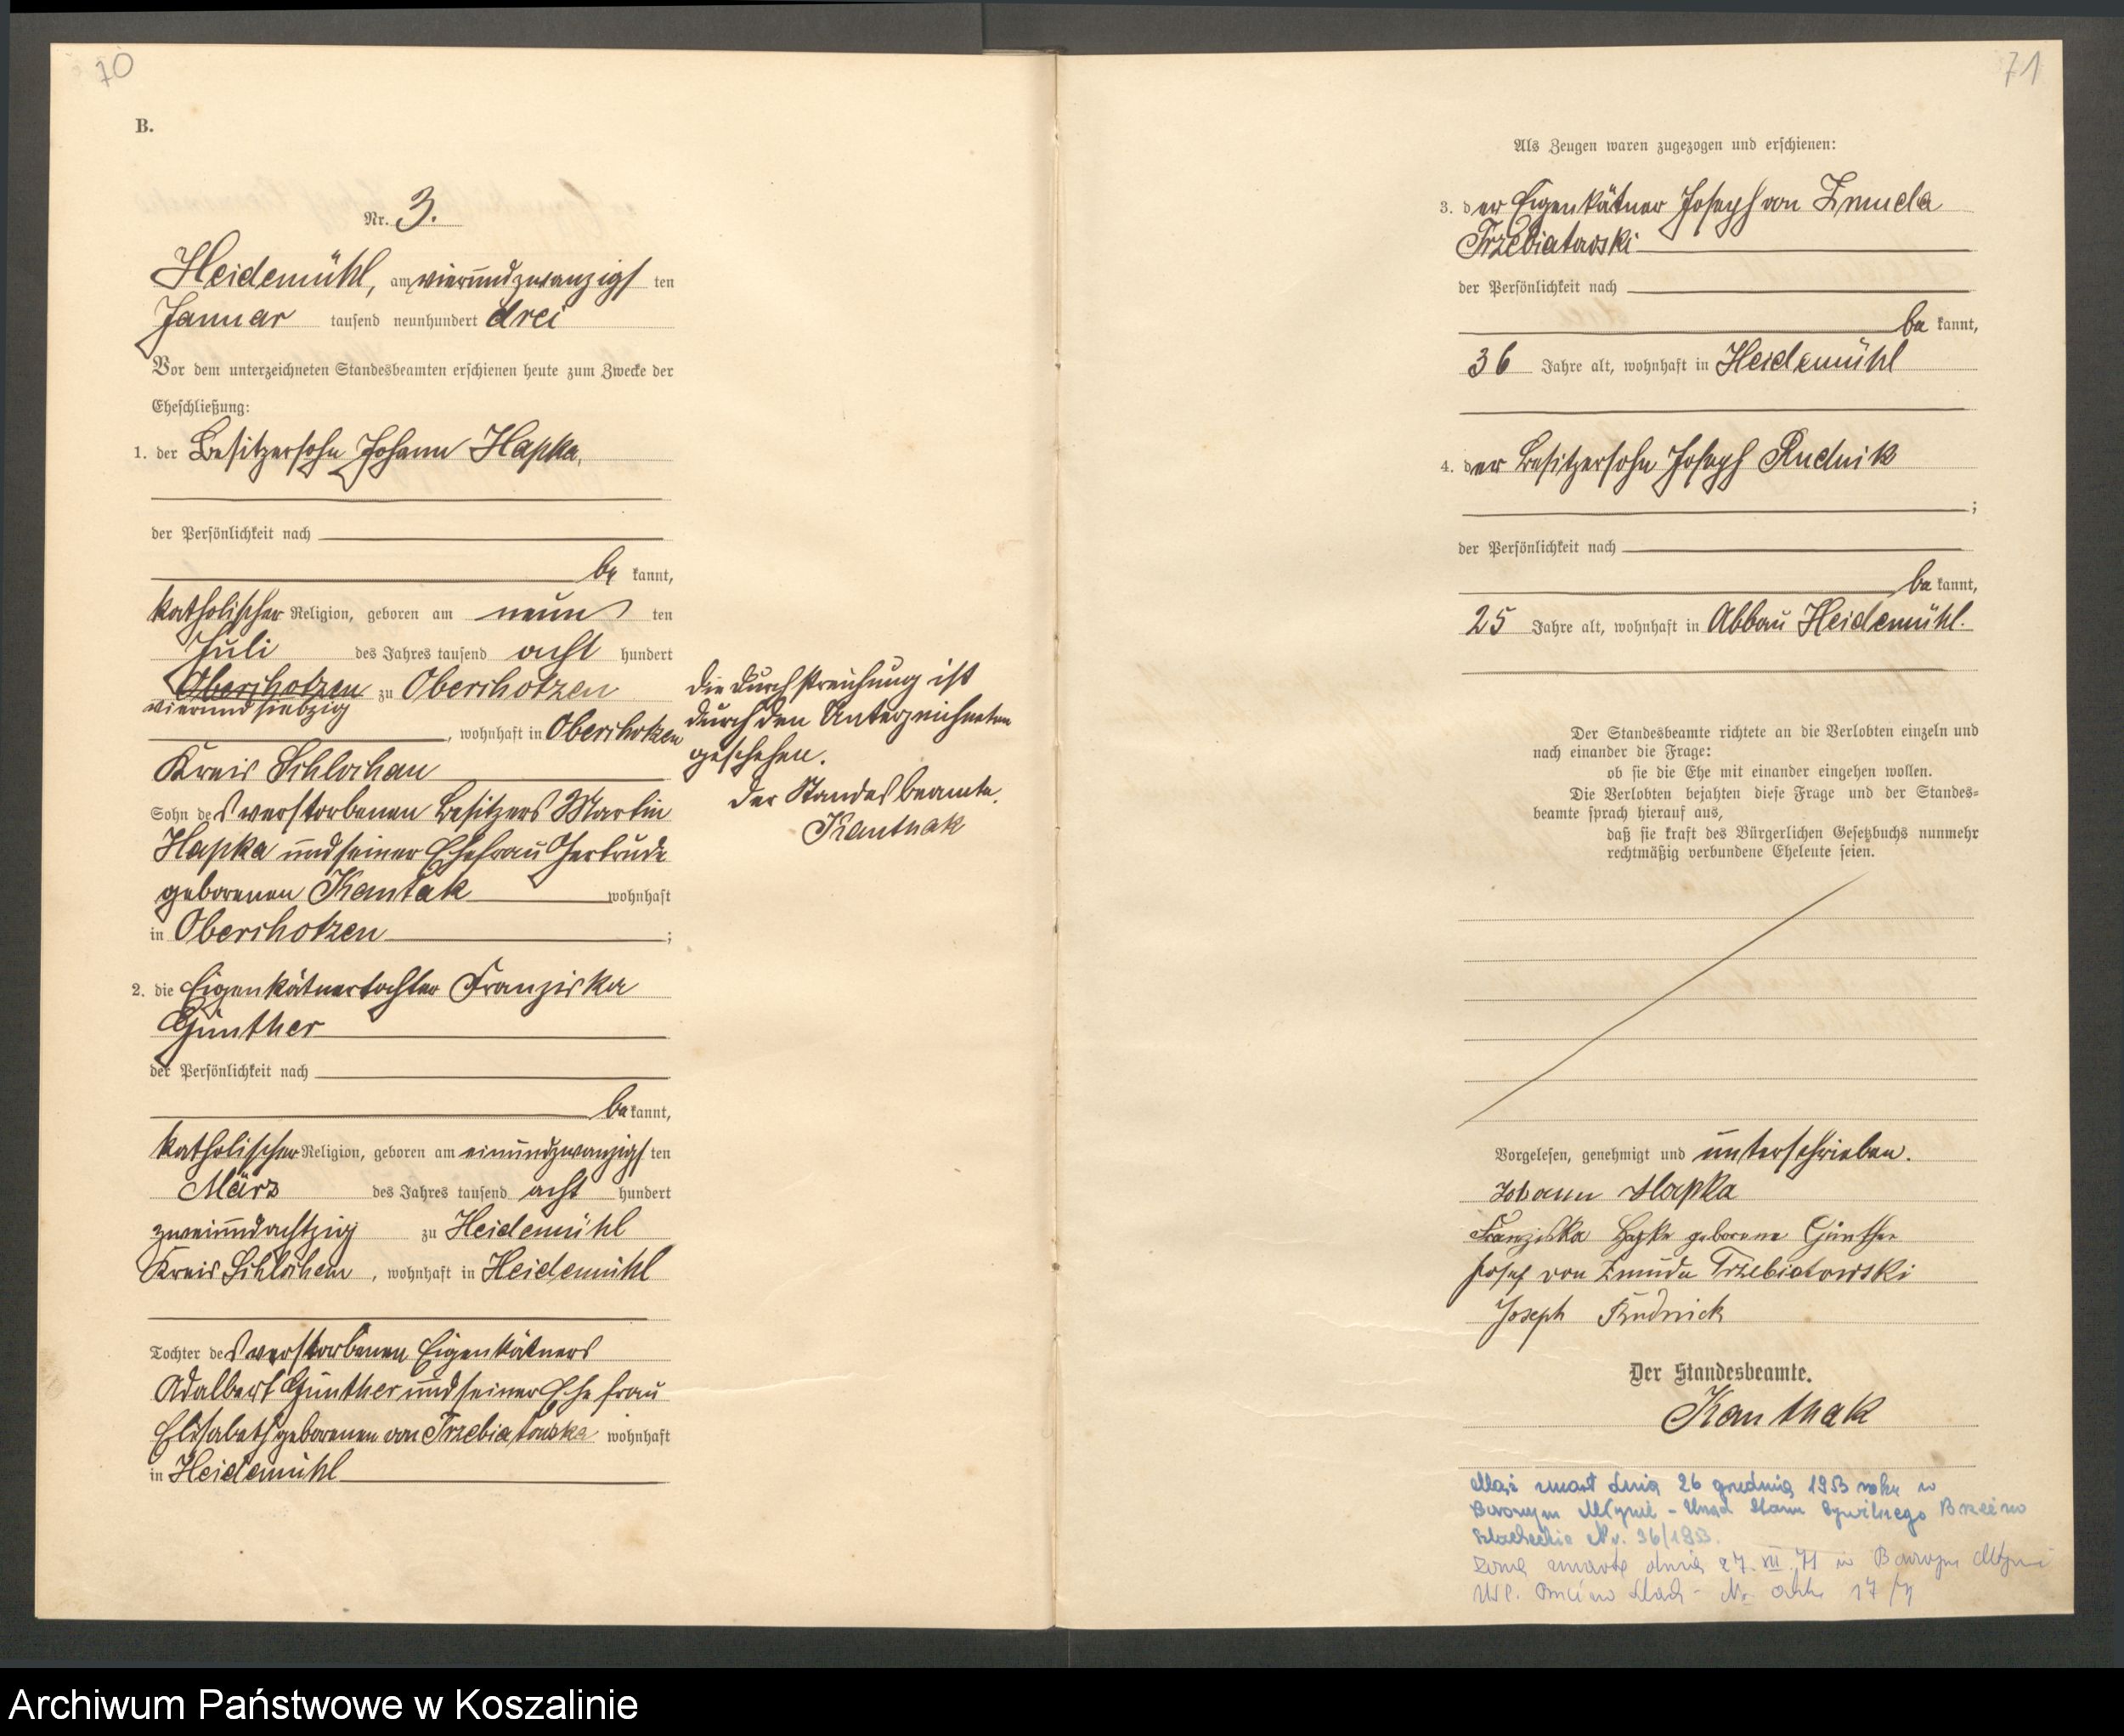 70
B.
Nr. 3.
Heidemühl, am vierundzwanzigsten
Januar tausend neunhundert drei
Vor dem unterzeichneten Standesbeamten erschienen heute zum Zwecke der
Eheschließung:
1. der Besitzersohn Johann Hapka,
der Persönlichkeit nach
be kannt,
katholischer Religion, geboren am neun ten
Juli des Jahres tausend acht hundert
Oberchotzen zu Oberchotzen
vierundsiebzig
, wohnhaft in Oberchotzen
Kreis Schlochau
Sohn des verstorbenen Besitzers Martin
Hapka und seiner Ehefrau Gertrude
geborenen Kantak wohnhaft
in Oberchotzen ;
die Durchstreichung ist
durch den Unterzeichneten
geschehen.
Der Standesbeamte.
Kanthak
2. die Eigenkätnertochter Franziska
Günther
der Persönlichkeit nach
be kannt,
katholischer Religion, geboren am einundzwanzigsten
März des Jahres tausend acht hundert
zweiundachtzig zu Heidemühl
Kreis Schlochau, wohnhaft in Heidemühl
Tochter des verstorbenen Eigenkätners
Adalbert Günther und seiner Ehefrau
Elisabeth geborenen von Trzebiatowska wohnhaft
in Heidemühl
71
Als Zeugen waren zugezogen und erschienen:
3. der Eigenkätner Joseph von Zmuda
Trzebiatowski
der Persönlichkeit nach
be kannt,
36 Jahre alt, wohnhaft in Heidemühl
4. der Besitzersohn Joseph Rudnik
;
der Persönlichkeit nach
be kannt,
25 Jahre alt, wohnhaft in Abbau Heidemühl.
Der Standesbeamte richtete an die Verlobten einzeln und
nach einander die Frage:
ob sie die Ehe mit einander eingehen wollen.
Die Verlobten bejahten diese Frage und der Standes-
beamte sprach hierauf aus,
daß sie kraft des Bürgerlichen Gesetzbuchs nunmehr
rechtmäßig verbundene Eheleute seien.
Vorgelesen, genehmigt und unterschrieben.
Johann Hapka
Franziska Hapka geborene Günther
Josef von Zmuda Trzebiatowski
Joseph Rudnick
Der Standesbeamte.
Kanthak
Mąż zmarł dnia 26 grudnia 1953 roku w
Borowym Młynie - Urząd Stanu Cywilnego Brzeźno
Szlacheckie Nr. 36/1953.
Żona zmarła dnia 27. XII. 71 w Borowym Młynie
USC. Brzeźno Szlach - Nr aktu 17/71
Archiwum Państwowe w Koszalinie